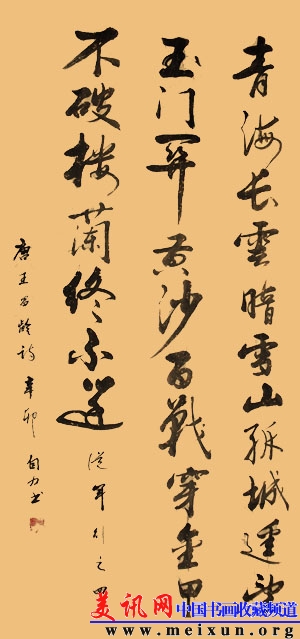 青海长雲暗雪山孤城遥望
玉门関黄沙百戰穿金甲
不破楼蘭终不还 從军行之四
唐王昌龄詩 辛卯 力书
美讯网 中国书画收藏频道
www.meixun.org